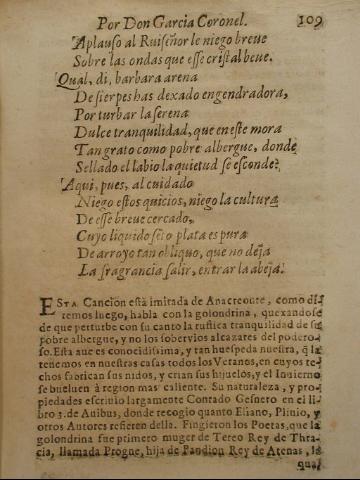 Por Don Garcia Coronel. 109
Aplauso al Ruiseñor le niego breue
Sobre las ondas que esse cristal beue.
Qual, di, barbara arena
De sierpes has dexado engendradora,
Por turbar la serena
Dulce tranquilidad, que en este mora
Tan grato como pobre albergue, donde
Sellado el labio la quietud se esconde?
Aqui, pues, al cuidado
Niego estos quicios, niego la cultura
De esse breue cercado,
Cuyo liquido seto plata es pura
De arroyo tan obliquo, que no deja
La fragrancia salir, entrar la abeja.
ESTA Cancion està imitada de Anacreonte, como di-
remos luego, habla con la golondrina, quexandose
de que perturbe con su canto la rustica tranquilidad de su
pobre albergue, y no los sobervios alcazares del podero-
so. Esta aue es conocidissima, y tan huespeda nuestra, q̃ la
tenemos en nuestras casas todos los Veranos, en cuyos te-
chos fabrican sus nidos, y crian sus hijuelos, y el Inuierno
se bueluen à region mas caliente. Su naturaleza, y pro-
piedades escriuio largamente Contado Gesnero en el li-
bro 3. de Auibus, donde recogio quanto Eliano, Plinio, y
otros Autores refieren della. Fingieron los Poetas, que la
golondrina fue primero muger de Tereo Rey de Thra-
cia, llamada Progne, hija de Pandion Rey de Atenas, la
qual